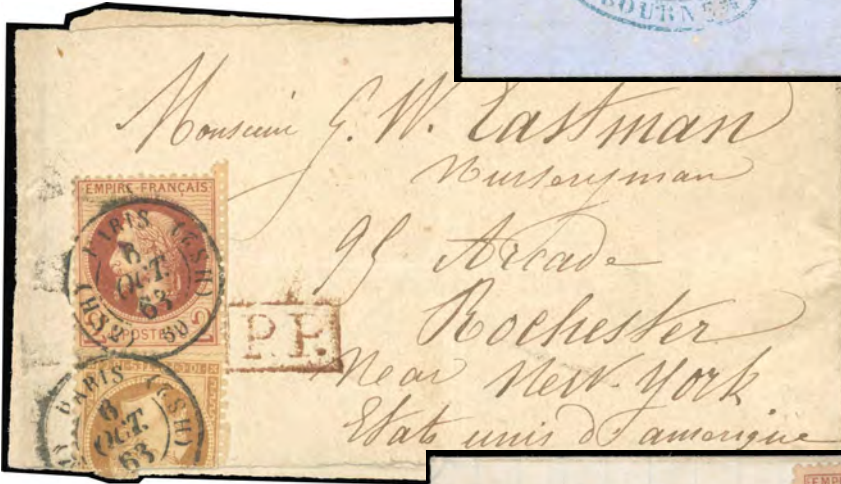 BOURNE
Monsieur G. W. Eastman
Nurseryman
95 Arcade
Rochester
Near New-York
Etats unis d'amerique
EMPIRE FRANÇAIS
PARIS (SC)
6
OCT.
63
60
POSTES
2
P.P.
PARIS (SC)
6
OCT.
63
EMPI